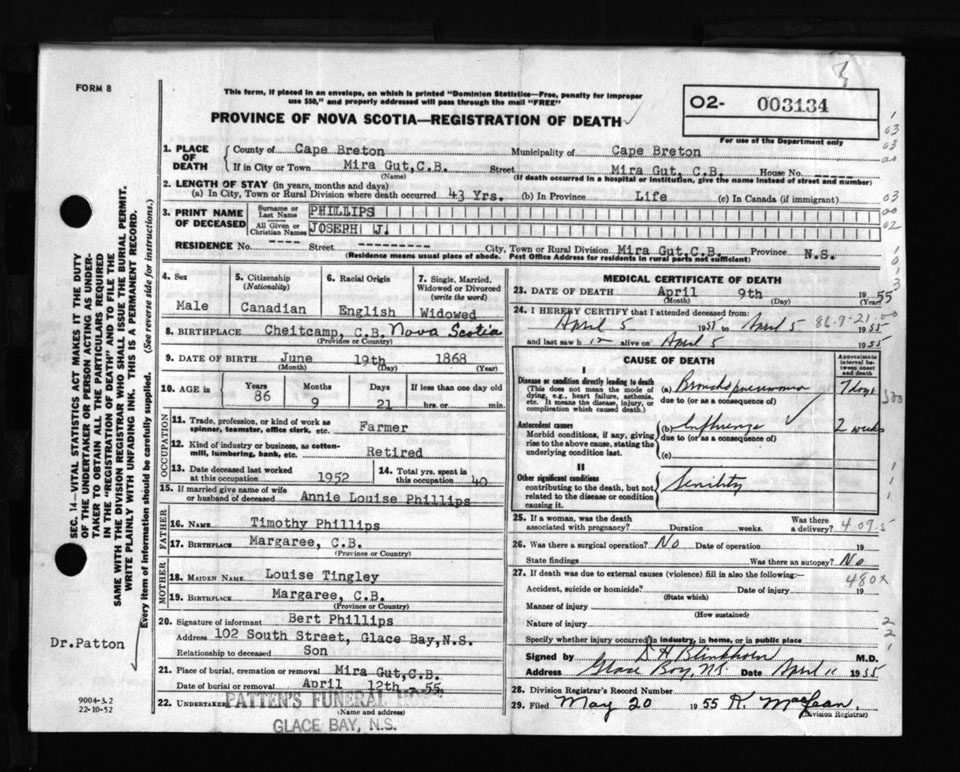 FORM 8
This form, if placed in an envelope, on which is printed "Dominion Statistics—Free, penalty for improper
use $50," and properly addressed will pass through the mail "FREE"
PROVINCE OF NOVA SCOTIA—REGISTRATION OF DEATH
02- 003134
For use of the Department only
1. PLACE OF DEATH
County of Cape Breton Municipality of Cape Breton
If in City or Town Mira Gut,C.B. Street Mira Gut, C.B. House No. -----
(Name) (If death occurred in a hospital or institution, give the name instead of street and number)
2. LENGTH OF STAY (in years, months and days)
(a) In City, Town or Rural Division where death occurred 43 Yrs. (b) In Province Life (c) In Canada (if immigrant)
3. PRINT NAME OF DECEASED
Surname or Last Name PHILLIPS
All Given or Christian Names JOSEPH J.
RESIDENCE No. ---- Street ---------- City, Town or Rural Division Mira Gut,C.B. Province N.S.
(Residence means usual place of abode. Post Office Address for residents in rural parts not sufficient)
4. Sex
Male
5. Citizenship
(Nationality)
Canadian
6. Racial Origin
English
7. Single, Married,
Widowed or Divorced
(write the word)
Widowed
8. BIRTHPLACE Cheitcamp, C.B. Nova Scotia
(Province or Country)
9. DATE OF BIRTH June 19th 1868
(Month) (Day) (Year)
10. AGE in
Years Months Days If less than one day old
86 9 21 hrs. or min.
OCCUPATION
11. Trade, profession, or kind of work as
spinner, teamster, office clerk, etc. Farmer
12. Kind of industry or business, as cotton-
mill, lumbering, bank, etc. Retired
13. Date deceased last worked
at this occupation 1952
14. Total yrs. spent in
this occupation 40
15. If married give name of wife
or husband of deceased Annie Louise Phillips
FATHER
16. NAME Timothy Phillips
17. BIRTHPLACE Margaree, C.B.
(Province or Country)
MOTHER
18. MAIDEN NAME Louise Tingley
19. BIRTHPLACE Margaree, C.B.
(Province or Country)
20. Signature of informant Bert Phillips
Address 102 South Street, Glace Bay,N.S.
Relationship to deceased Son
21. Place of burial, cremation or removal Mira Gut,C.B.
Date of burial or removal April 12th 55
22. UNDERTAKER PATTEN'S FUNERAL
(Name and address)
GLACE BAY, N.S.
MEDICAL CERTIFICATE OF DEATH
23. DATE OF DEATH April 9th 1955
(Month) (Day) (Year)
24. I HEREBY CERTIFY that I attended deceased from:
April 5 1955 to April 5 1955
86-9-21-00
and last saw h alive on April 5 1955
CAUSE OF DEATH
Approximate
interval be-
tween onset
and death
I
Disease or condition directly leading to death
(This does not mean the mode of
dying, e.g., heart failure, asthenia,
etc. It means the disease, injury, or
complication which caused death.)
(a) Bronchopneumonia 7 days
due to (or as a consequence of)
Antecedent causes
Morbid conditions, if any, giving
rise to the above cause, stating the
underlying condition last.
(b) Influenza 2 weeks
due to (or as a consequence of)
(c)
II
Other significant conditions
contributing to the death, but not
related to the disease or condition
causing it.
Senility
25. If a woman, was the death
associated with pregnancy? Duration weeks. Was there
a delivery?
26. Was there a surgical operation? No Date of operation 19
State findings Was there an autopsy? No
27. If death was due to external causes (violence) fill in also the following:—
480X
Accident, suicide or homicide? Date of injury 19
(State which)
Manner of injury
(How sustained)
Nature of injury
Specify whether injury occurred in industry, in home, or in public place
Signed by D H Blinkhorn M.D.
Address Glace Bay, N.S. Date April 11 1955
28. Division Registrar's Record Number
29. Filed May 20 1955 R. MacLean
(Division Registrar)
SEC. 14—VITAL STATISTICS ACT MAKES IT THE DUTY
OF THE UNDERTAKER OR PERSON ACTING AS UNDER-
TAKER TO OBTAIN ALL THE PARTICULARS REQUIRED
IN THE "REGISTRATION OF DEATH" AND TO FILE THE
SAME WITH THE DIVISION REGISTRAR WHO SHALL ISSUE THE BURIAL PERMIT.
WRITE PLAINLY WITH UNFADING INK. THIS IS A PERMANENT RECORD.
Every item of information should be carefully supplied. (See reverse side for instructions.)
Dr.Patton
9004-3.2
22-10-52